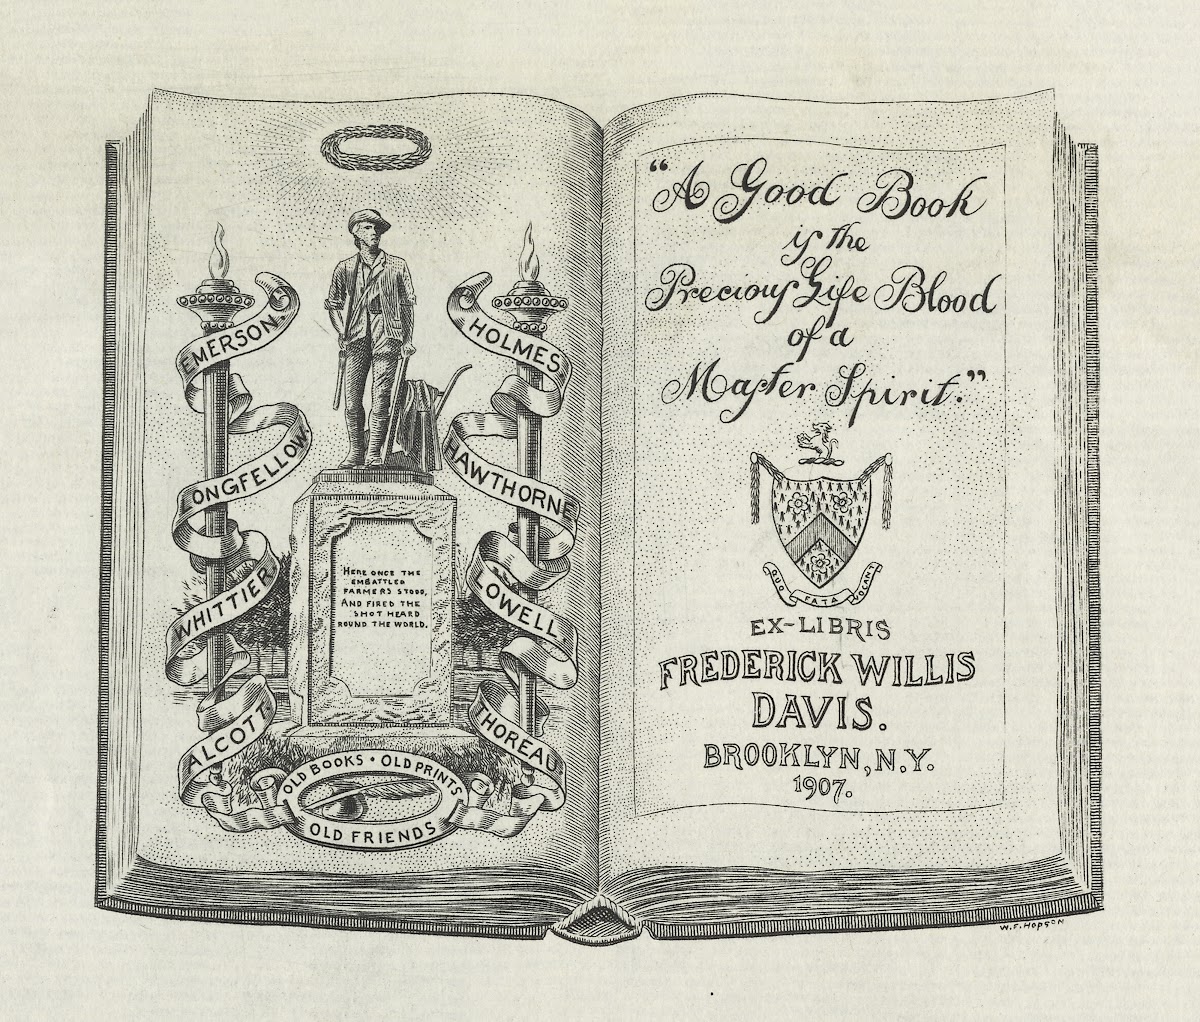 EMERSON.
LONGFELLOW
WHITTIER
ALCOTT
HOLMES
HAWTHORNE
LOWELL
THOREAU
HERE ONCE THE
EMBATTLED
FARMERS STOOD,
AND FIRED THE
SHOT HEARD
ROUND THE WORLD.
OLD BOOKS • OLD PRINTS
OLD FRIENDS
"A Good Book
is the
Precious Life Blood
of a
Master Spirit."
QUO FATA VOCANT
EX-LIBRIS
FREDERICK WILLIS
DAVIS.
BROOKLYN, N.Y.
1907.
W. F. HOPSON